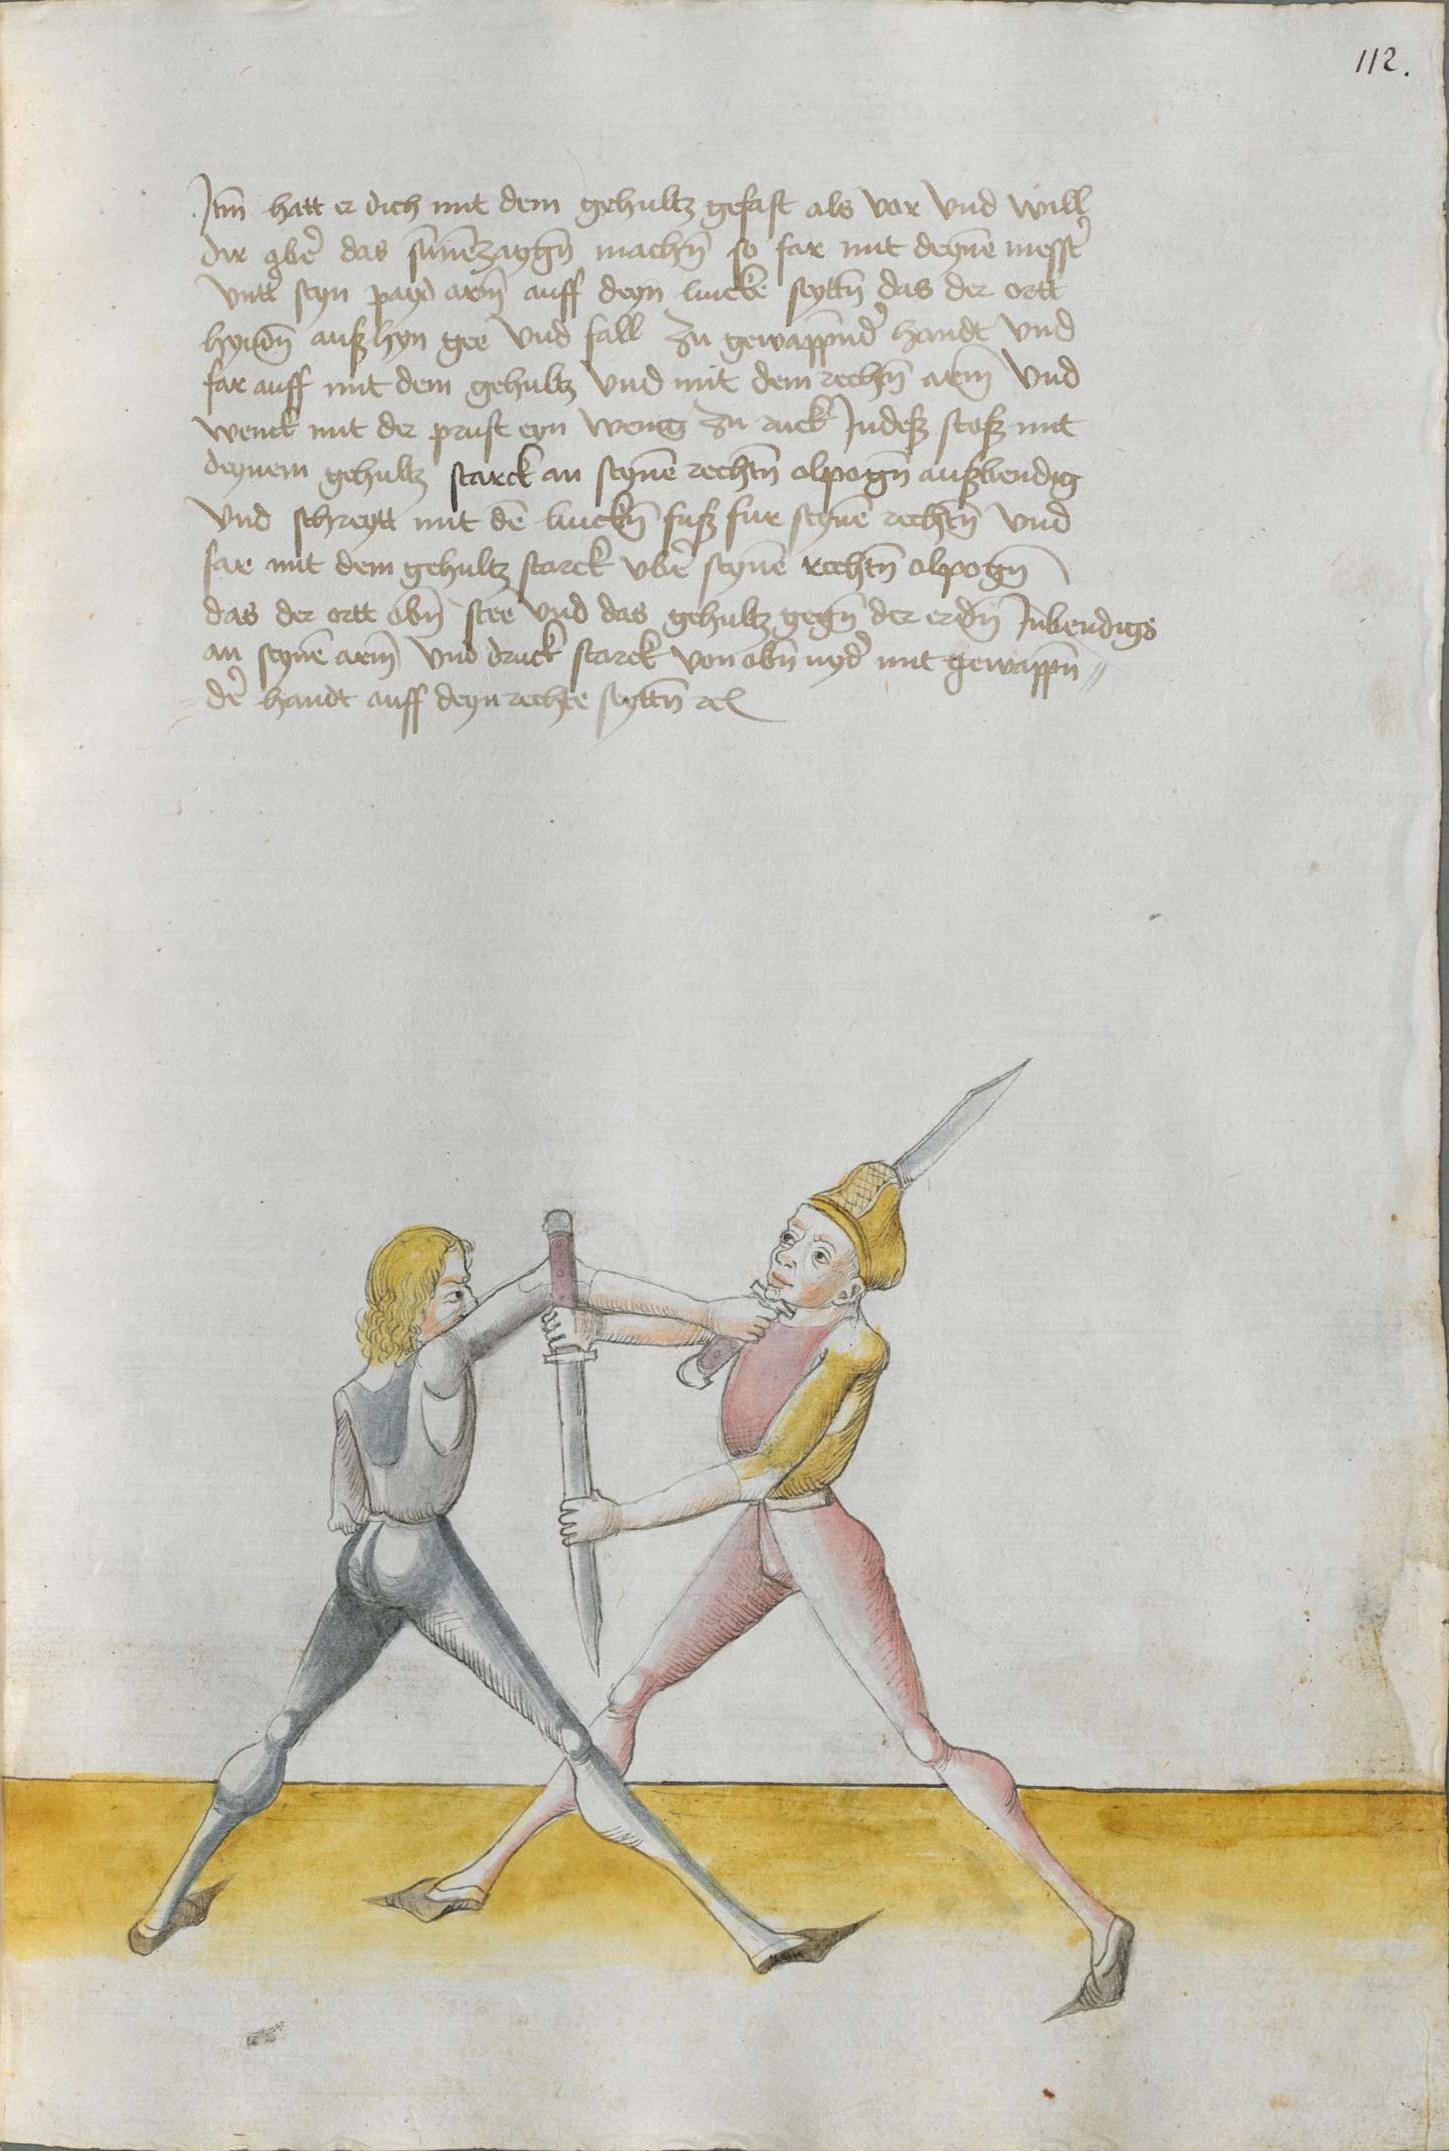 112.
Itm̄ hatt er dich mit dem gehultz gefast als vor vnd will
dir ob̄e das sunēzaygn̄ machn̄ so far mit deynē messr̄
vntr̄ seyn payd arm̄ auff deyn lincke seyttn̄ das der ortt
hyndn̄ auß hyn gee vnd fall zu gewappndr̄ handt vnd
far auff mit dem gehultz vnd mit dem rechtn̄ arm̄ vnd
wenck mit der prust eyn wenig zu ruck Indeß stoß mit
deynem gehultz starck an seynē rechtn̄ elpogn̄ außbendig
vnd schreytt mit dē linckn̄ fuß fur seynē rechtn̄ vnd
far mit dem gehultz starck vbē seynē rechtn̄ elpogn̄
das der ortt obn̄ stee vnd das gehultz gegn̄ der erdn̄ Inbendigs
an seynē arm̄ vnd druck starck von obn̄ nydr̄ mit gewappn̄
dē handt auff deyn rechte seyttn̄ rc